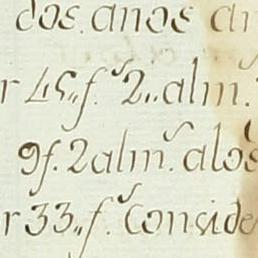 dos. anos an
r 45„f.s 2„alm.s
9f. 2alm.s alos
r 33„f.s Conside